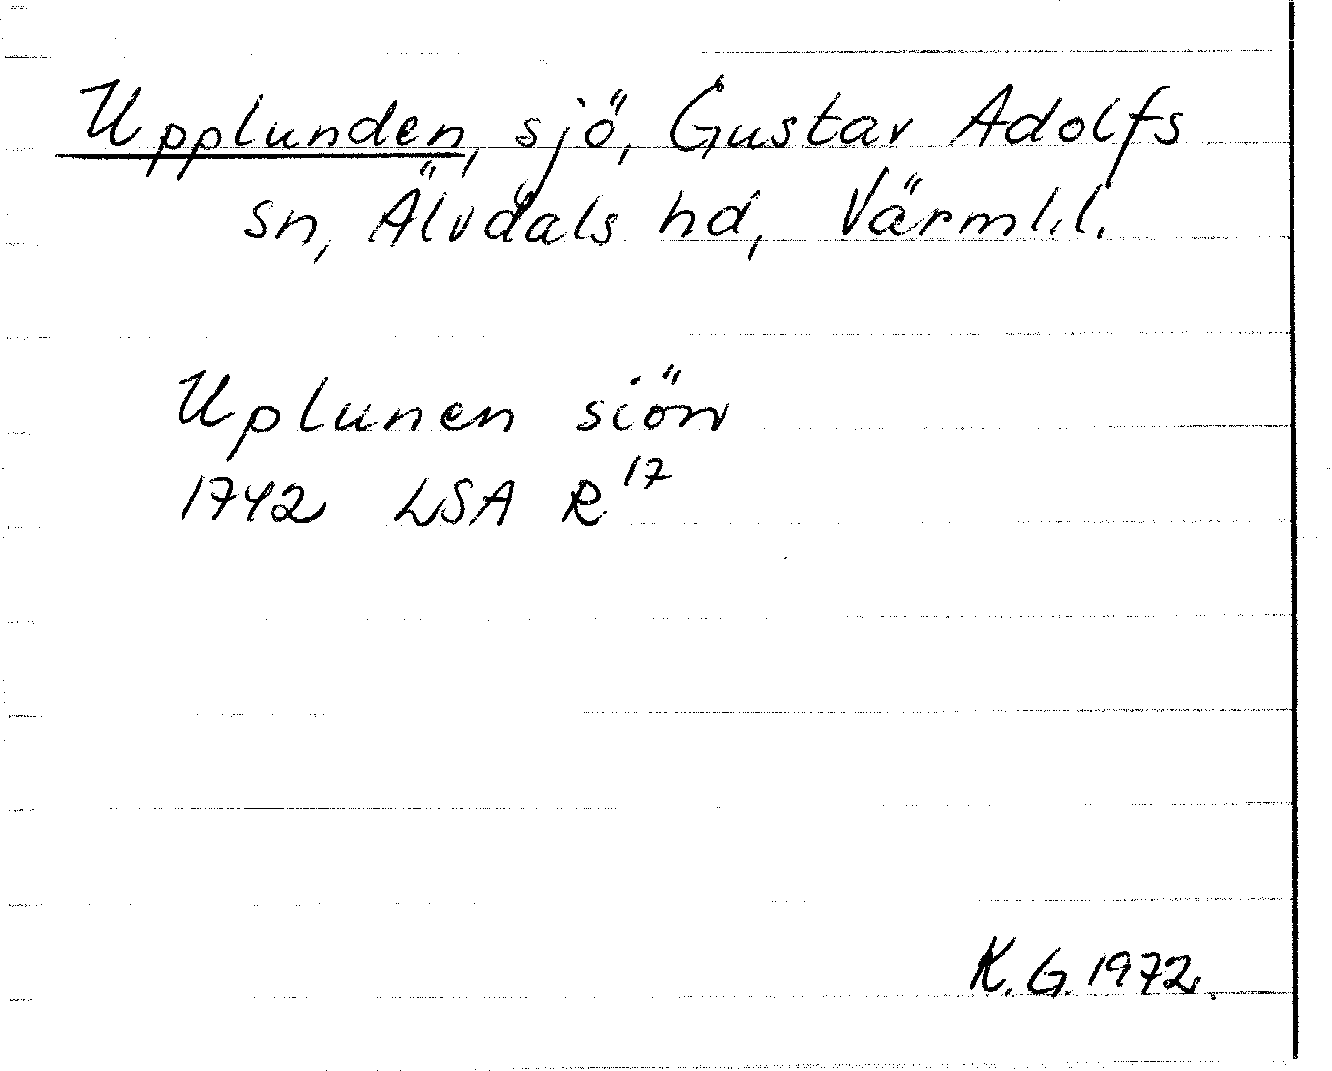 Upplunden, sjö, Gustav Adolfs
sn, Älvdals hd, Värml.l.
Uplunen siön
1742 LSA R 17
K.G. 1972.